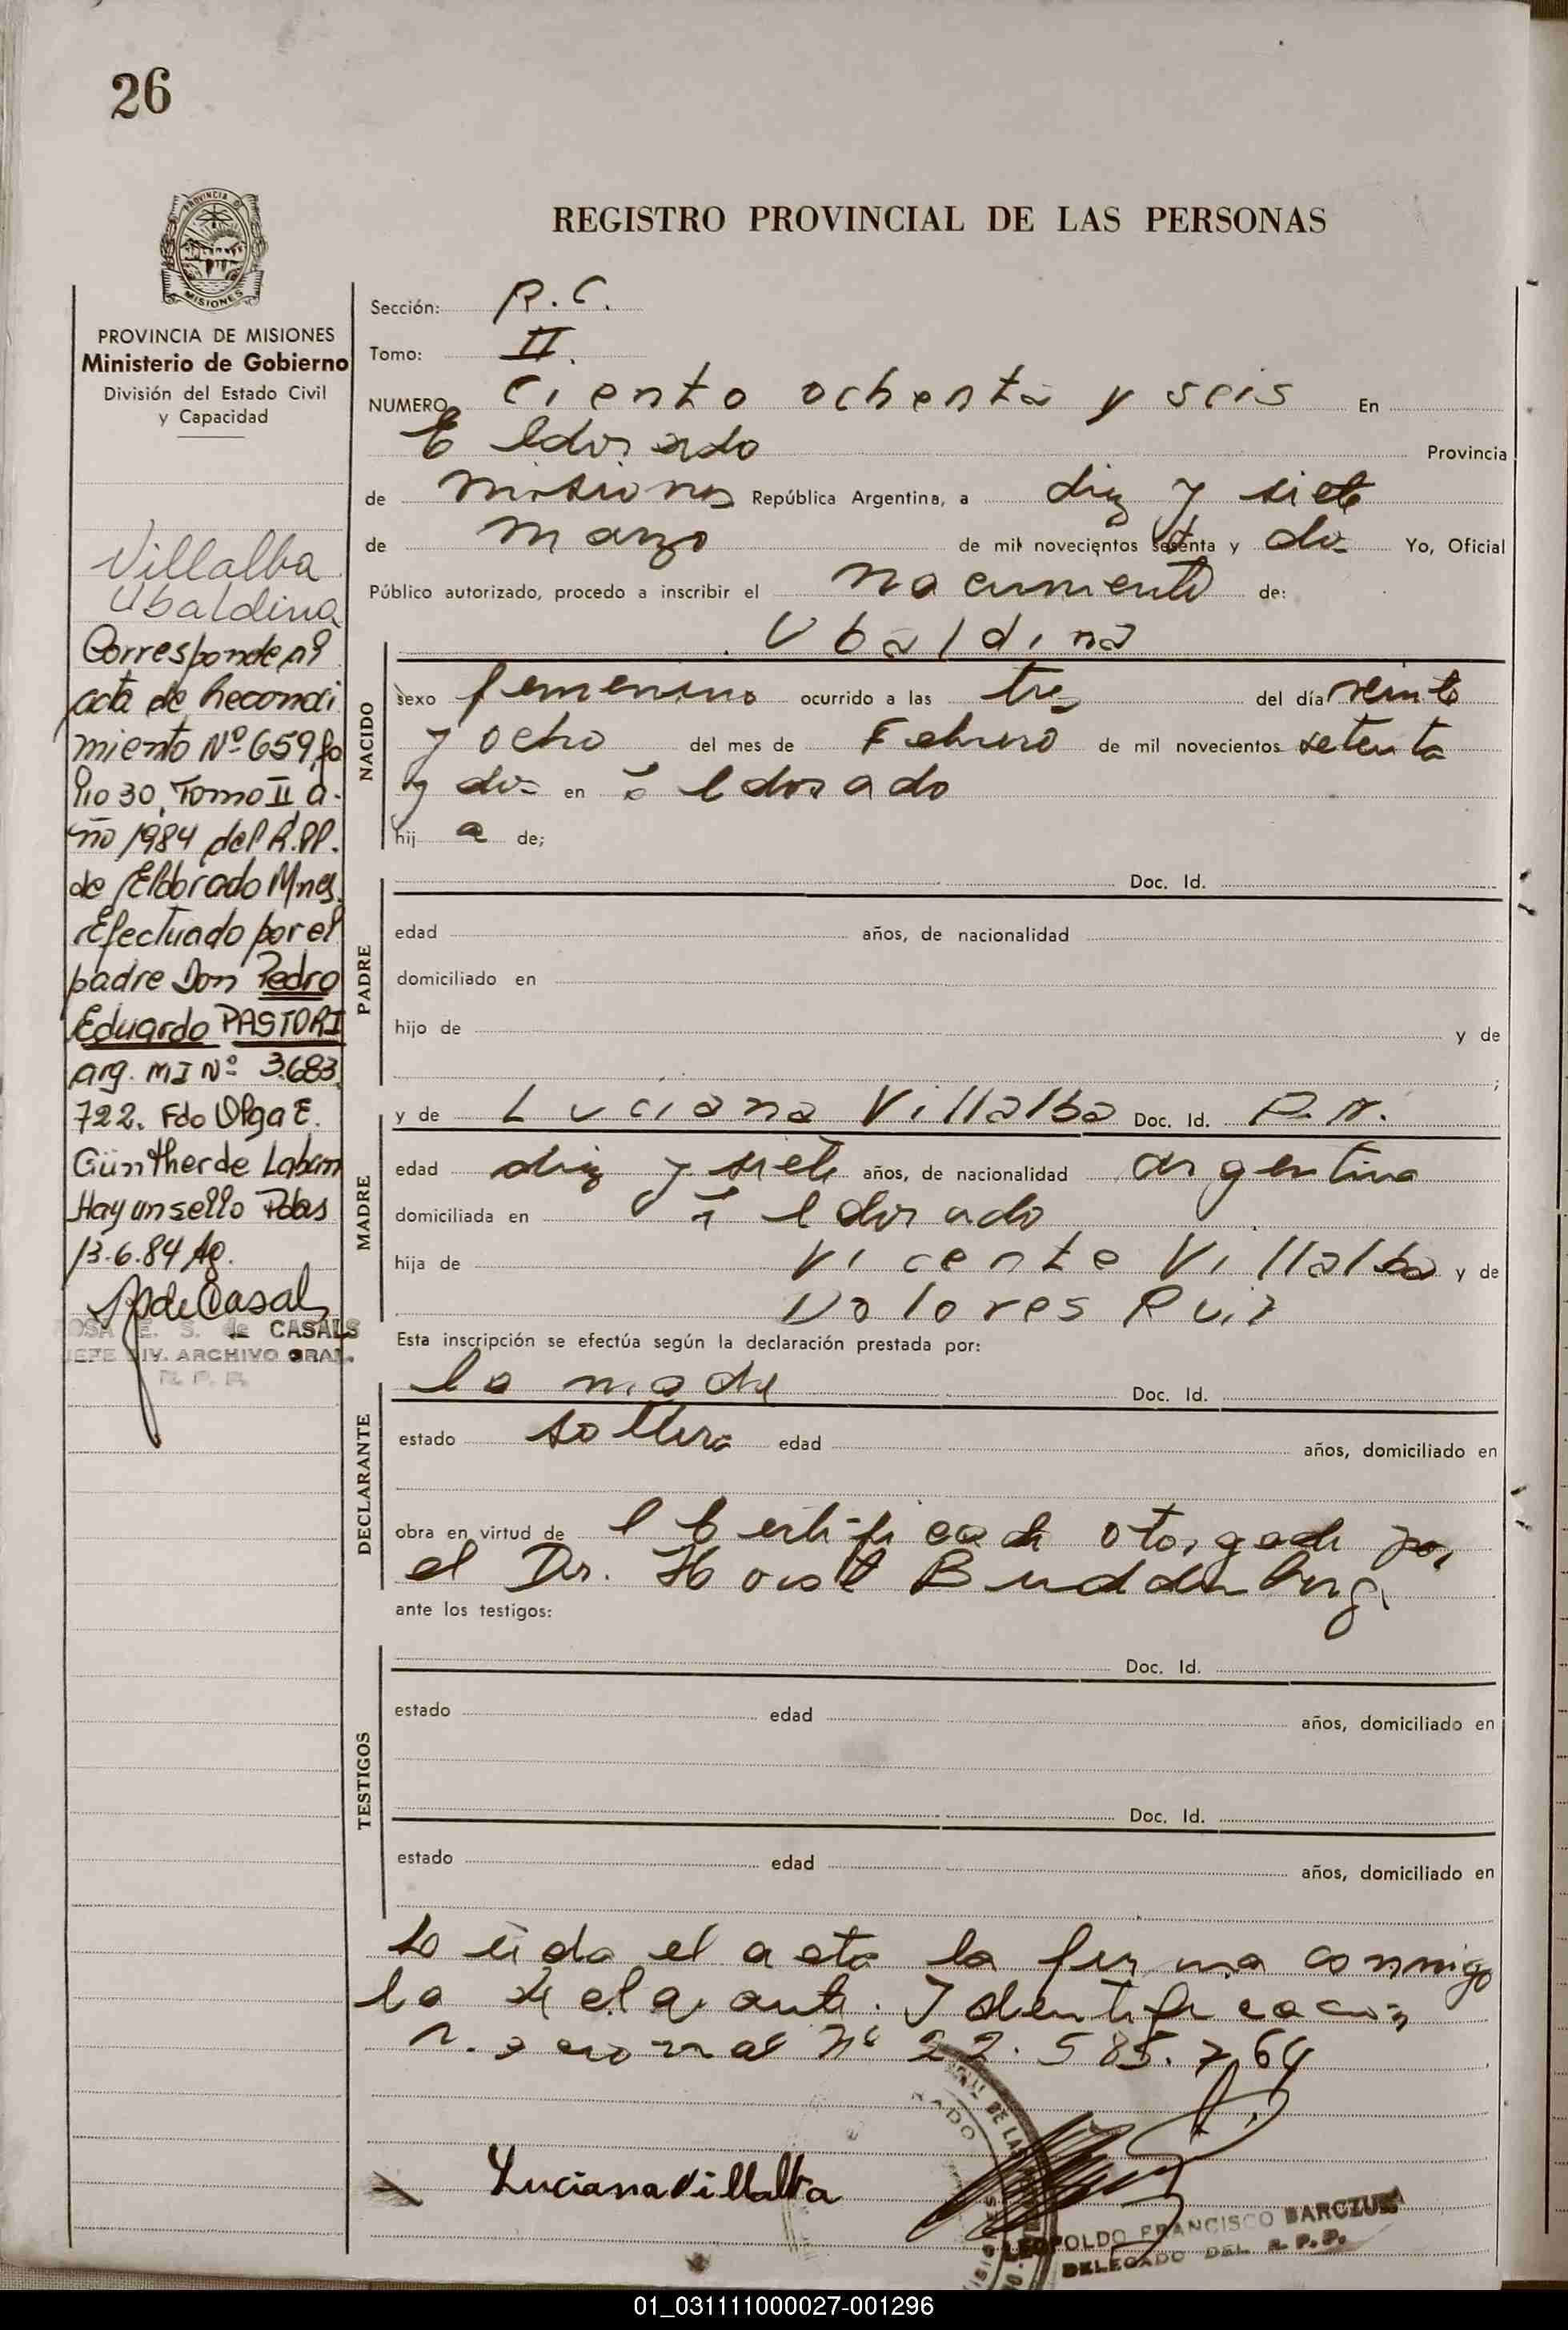 26
PROVINCIA DE
MISIONES
PROVINCIA DE MISIONES
Ministerio de Gobierno
División del Estado Civil
y Capacidad
Villalba
Ubaldina
Corresponde al
acta de Reconoci
miento Nº 659, fo
lio 30, Tomo II, a-
ño 1984 del R.PP.
de Eldorado Mnes.
Efectuado por el
padre Don Pedro
Eduardo PASTORI
arg. MI Nº 3.683.
722. Fdo Olga E.
Günther de Laban
Hay un sello Pdas
13.6.84 Ag.
E. S. de CASALS
JEFE DIV. ARCHIVO GRAL.
R. P. P.
REGISTRO PROVINCIAL DE LAS PERSONAS
Sección: R.C.
Tomo: II.
NUMERO Ciento ochenta y seis En
Eldorado Provincia
de misiones República Argentina, a diez y siete
de marzo de mil novecientos setenta y dos Yo, Oficial
Público autorizado, procedo a inscribir el nacimiento de:
Ubaldina
NACIDO
sexo femenino ocurrido a las tres del día veinte
y ocho del mes de Febrero de mil novecientos setenta
y dos en Eldorado
hij a de;
PADRE
Doc. Id.
edad años, de nacionalidad
domiciliado en
hijo de y de
;
MADRE
y de Luciana Villalba Doc. Id. P.N.
edad diez y siete años, de nacionalidad argentina
domiciliada en Eldorado
hija de Vicente Villalba y de
Dolores Ruiz
Esta inscripción se efectúa según la declaración prestada por:
DECLARANTE
la madre Doc. Id.
estado soltera edad años, domiciliado en
obra en virtud de l certificado otorgado por
el Dr. Horst Buddenberg.
ante los testigos:
TESTIGOS
Doc. Id.
estado edad años, domiciliado en
Doc. Id.
estado edad años, domiciliado en
Leida el acta la firma conmigo
la declarante. Identificación
nacional Nº 22.585.764
Luciana Villalba
LEOPOLDO FRANCISCO BARCZUK
DELEGADO DEL R.P.P.
01_031111000027-001296